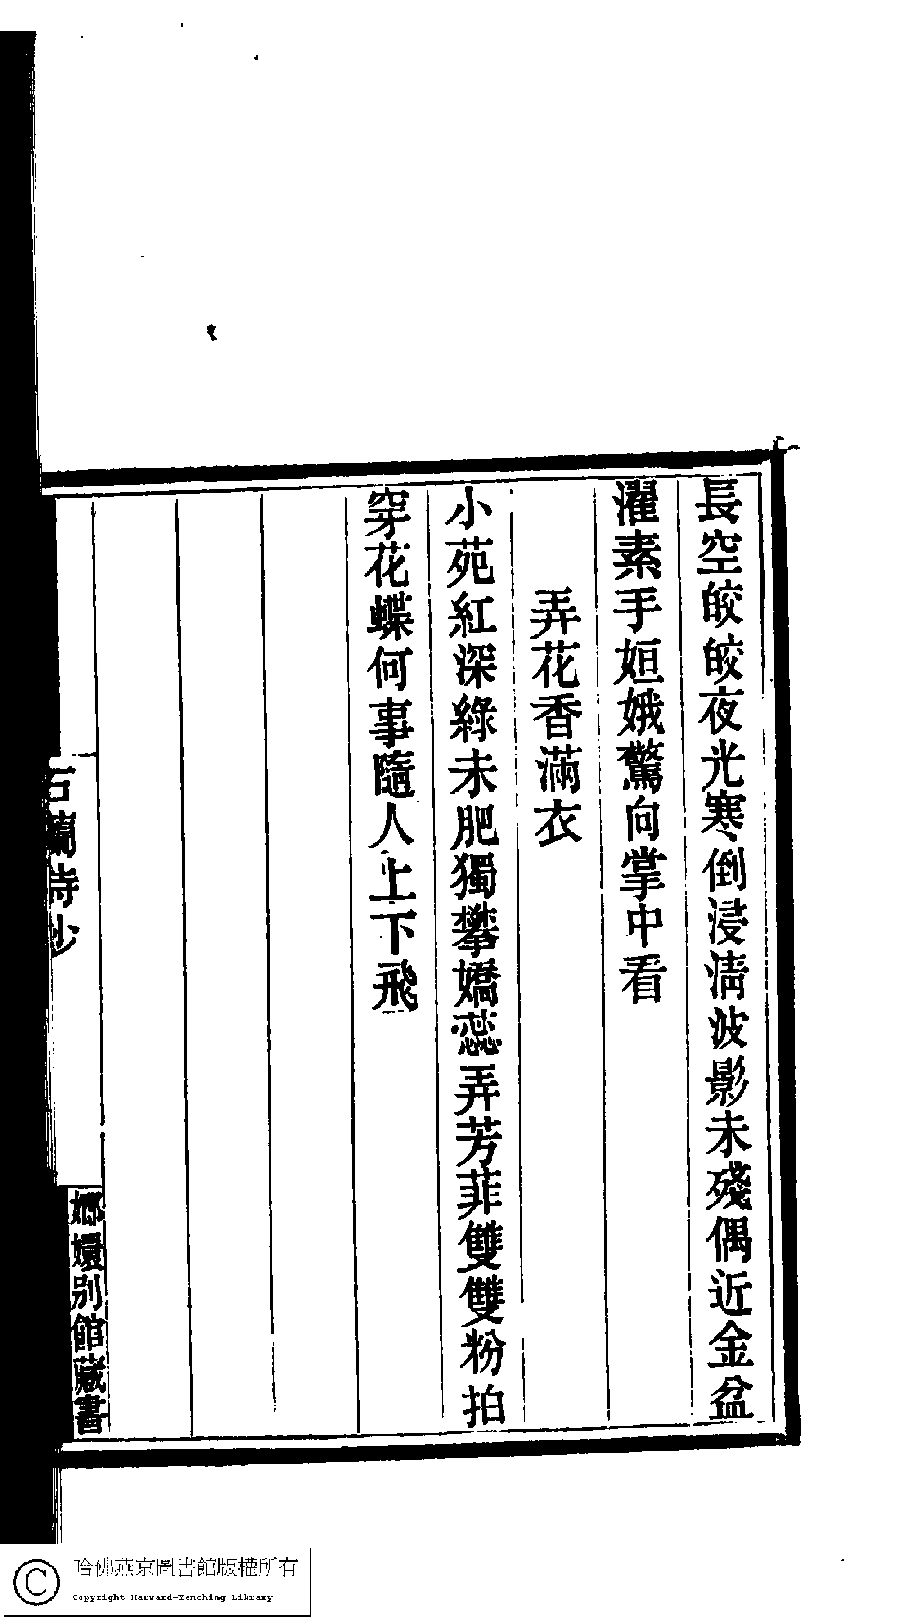 長空皎皎夜光寒倒浸淸波影未殘偶近金盆
濯素手姮娥驚向掌中看
弄花香滿衣
小苑紅深綠未肥獨攀嬌蕊弄芳菲雙雙粉拍
穿花蝶何事隨人上下飛
石蘭詩鈔
嫏嬛別館藏書
哈佛燕京圖書館版權所有
Copyright Harvard-Yenching Library